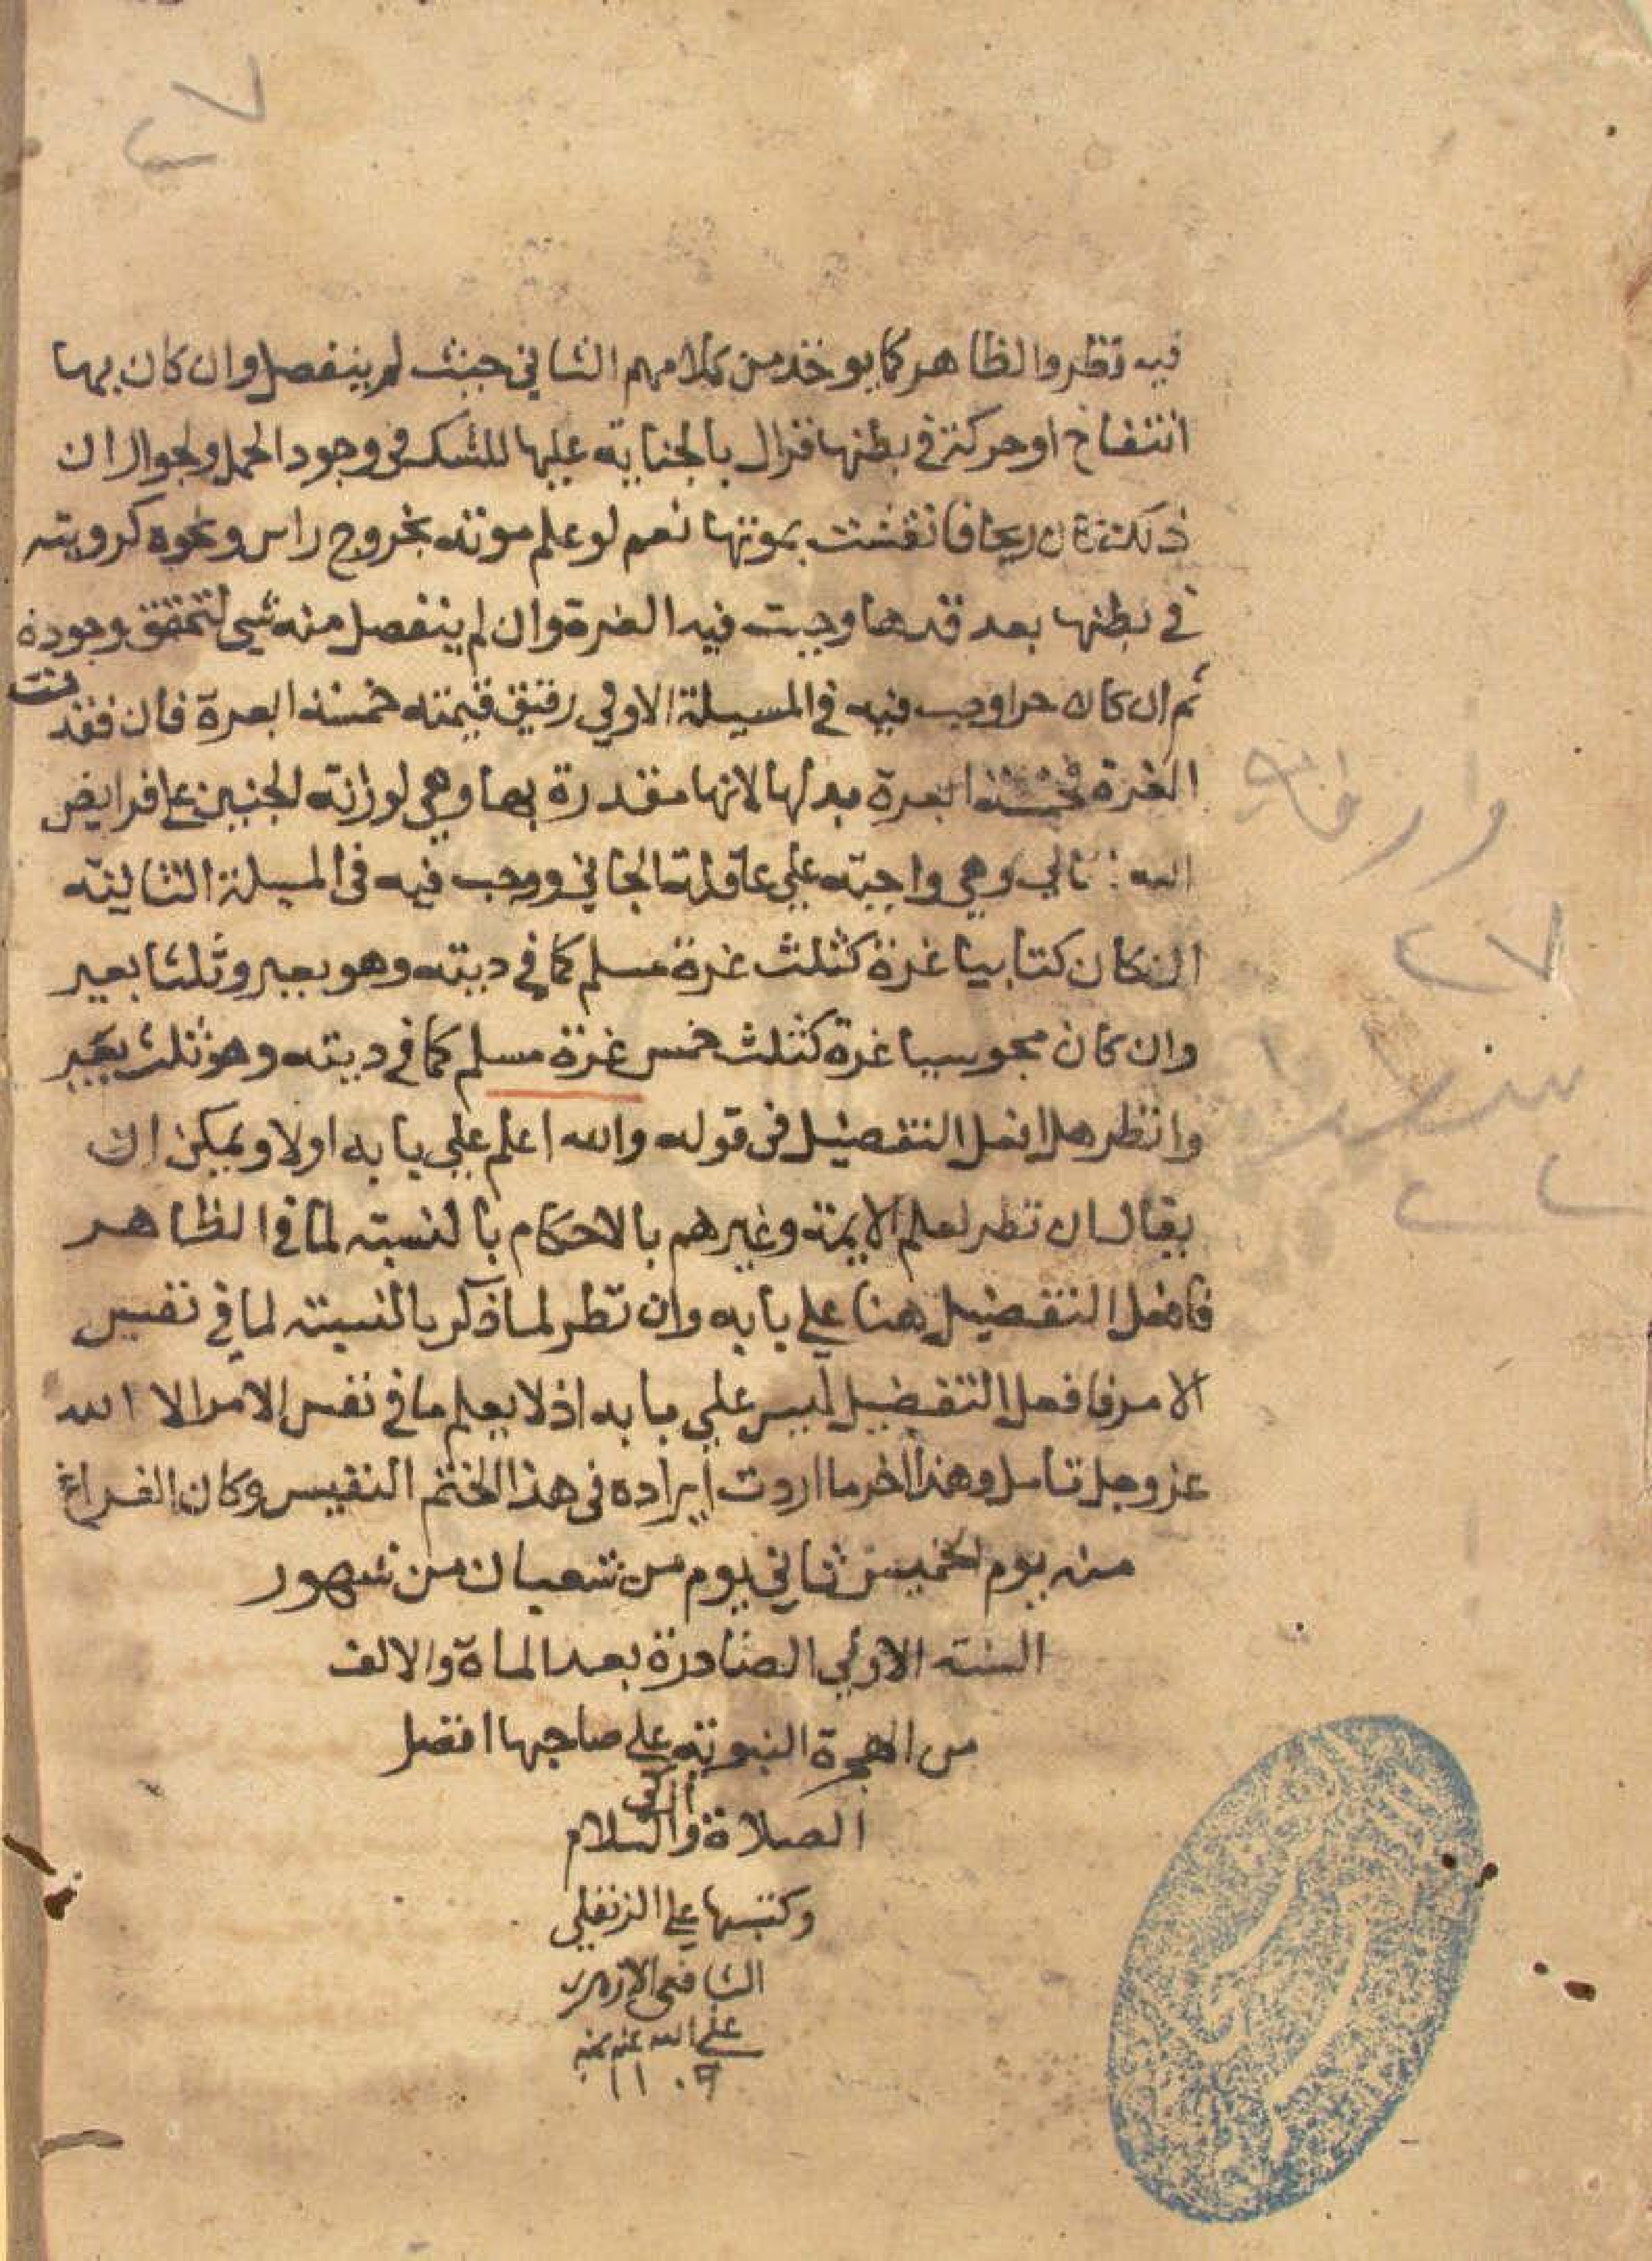 ٢٧
فيه نظر والظاهر كما يوخذ من كلامهم الثاني حيث لم ينفصل وان كان بها
انتفاخ او حركة في بطنها فزال بالجناية عليها للشك في وجود الحمل ولجواز ان
ذلك كان ريحا فانفشت بموتها نعم لو علم موته بخروج راس ونحوه كرويته
في بطنها بعد قدها وجبت فيه الغرة وان لم ينفصل منه شي لتحقق وجوده
ثم ان كان حرا وجب فيه في المسيلة الاولي رقيق قيمته خمسة ابعرة فان فقدت
الغرة فخمسة ابعرة بدلها لانها مقدرة بها وهي لورثة الجنين علي فرايض
الله تعالي وهي واجبة علي عاقلة الجاني ووجب فيه في المسيلة الثانية
ان كان كتابيا غرة كثلث غرة مسلم كما في ديته وهو بعير وثلثا بعير
وان كان مجوسيا غرة كثلث خمس غرة مسلم كما في ديته وهو ثلث بعير
وانظر هل افعل التفضيل في قوله والله اعلم علي بابه اولا ويمكن ان
يقال ان نظر لعلم الايمة وغيرهم بالاحكام بالنسبة لما في الظاهر
فافعل التفضيل هنا علي بابه وان نظر لما ذكر بالنسبة لما في نفس
الامر فافعل التفضيل ليس علي بابه اذ لا يعلم ما في نفس الامر الا الله
عز وجل تامل وهذا اخر ما اردت ايراده في هذا الختم النفيس وكان الفراغ
منه يوم الخميس ثاني يوم من شعبان من شهور
السنة الاولي الصادرة بعد الماة والالف
من الهجرة النبوية علي صاحبها افضل
الصلاة والسلام
وكتبها علي الزنفلي
الشافعي الازهري
١١٠٩
٢٧